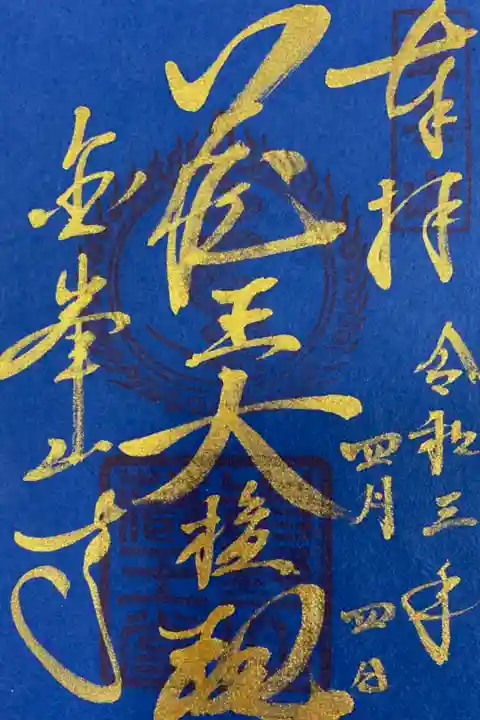 奉拝
令和三年
四月 四日
蔵王大権現
金峯山寺